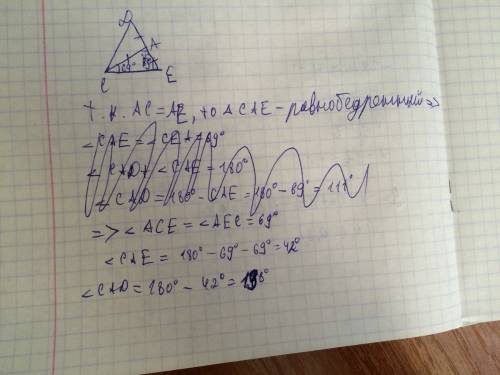 D
A
69°
C
E
т. к. AC=AE, то ACAE - равнобедренный =>
<CAE = <CEA = 69°
<CAD + <CAE = 180°
<CAD = 180° - CAE = 180° - 69° = 111°
=> <ACE = <AEC = 69°
<CAE = 180° - 69° - 69° = 42°
<CAD = 180° - 42° = 138°